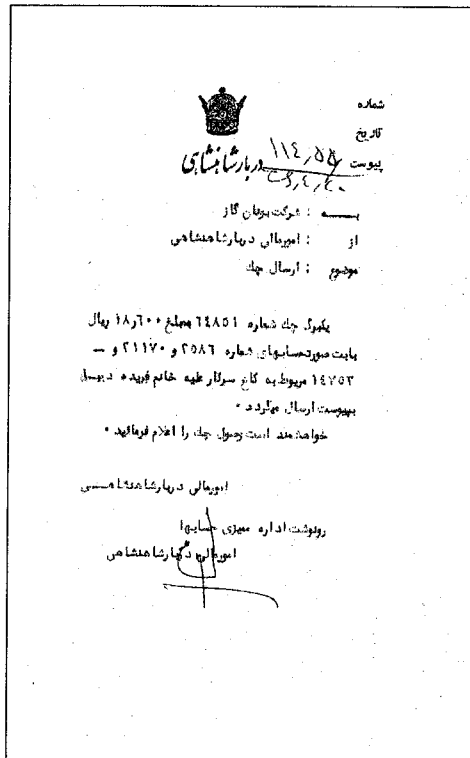 شماره
تاریخ
پیوست
۱۱٤٫۵۵
دربار شاهنشاهی
بــه : شرکت بوتان گاز
از : امورمالی دربارشاهنشاهی
موضوع : ارسال چك
یکبرگ چك شماره ٦٤٨٥١ بمبلغ ۱۸٫٦۰۰ ریال
بابت صورتحسابهای شماره ۲۵۸٦ و ۲۱۱۷۰ و ــ
۱٤۷۵۳ مربوط به کاخ سرکار علیه خانم فریده دیبــا
بپیوست ارسال میگردد ۰
خواهشمند است وصول چك را اعلام فرمائید ۰
امورمالی دربارشاهنشاهــی
رونوشت اداره ممیزی حسابها
امورمالی دربارشاهنشاهی